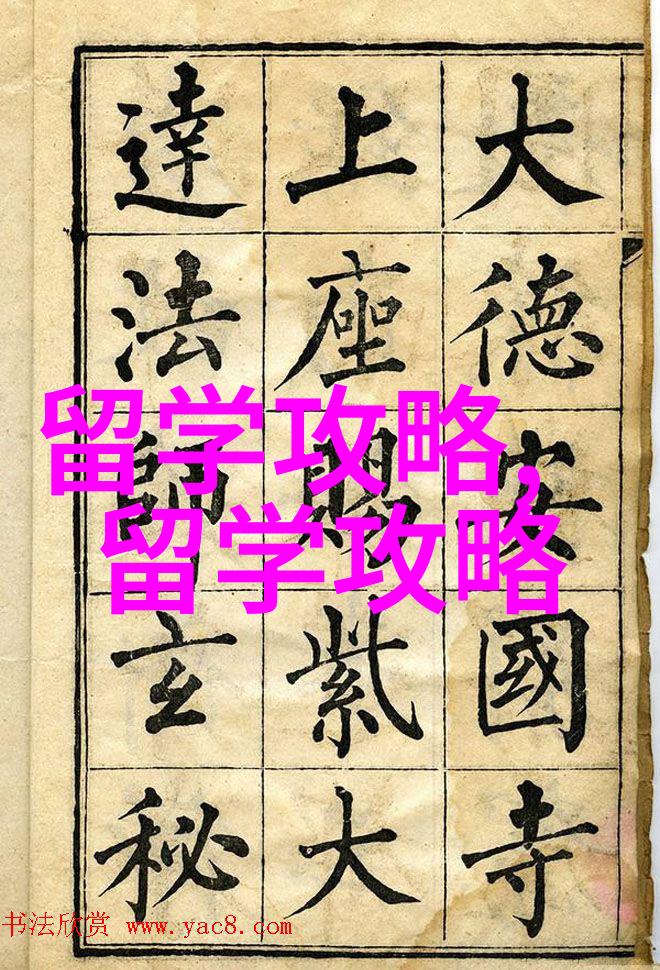 大德安國寺
上座賜紫大
達法師玄秘
留学攻略,
留学攻略
书法欣赏 www.yac8.com